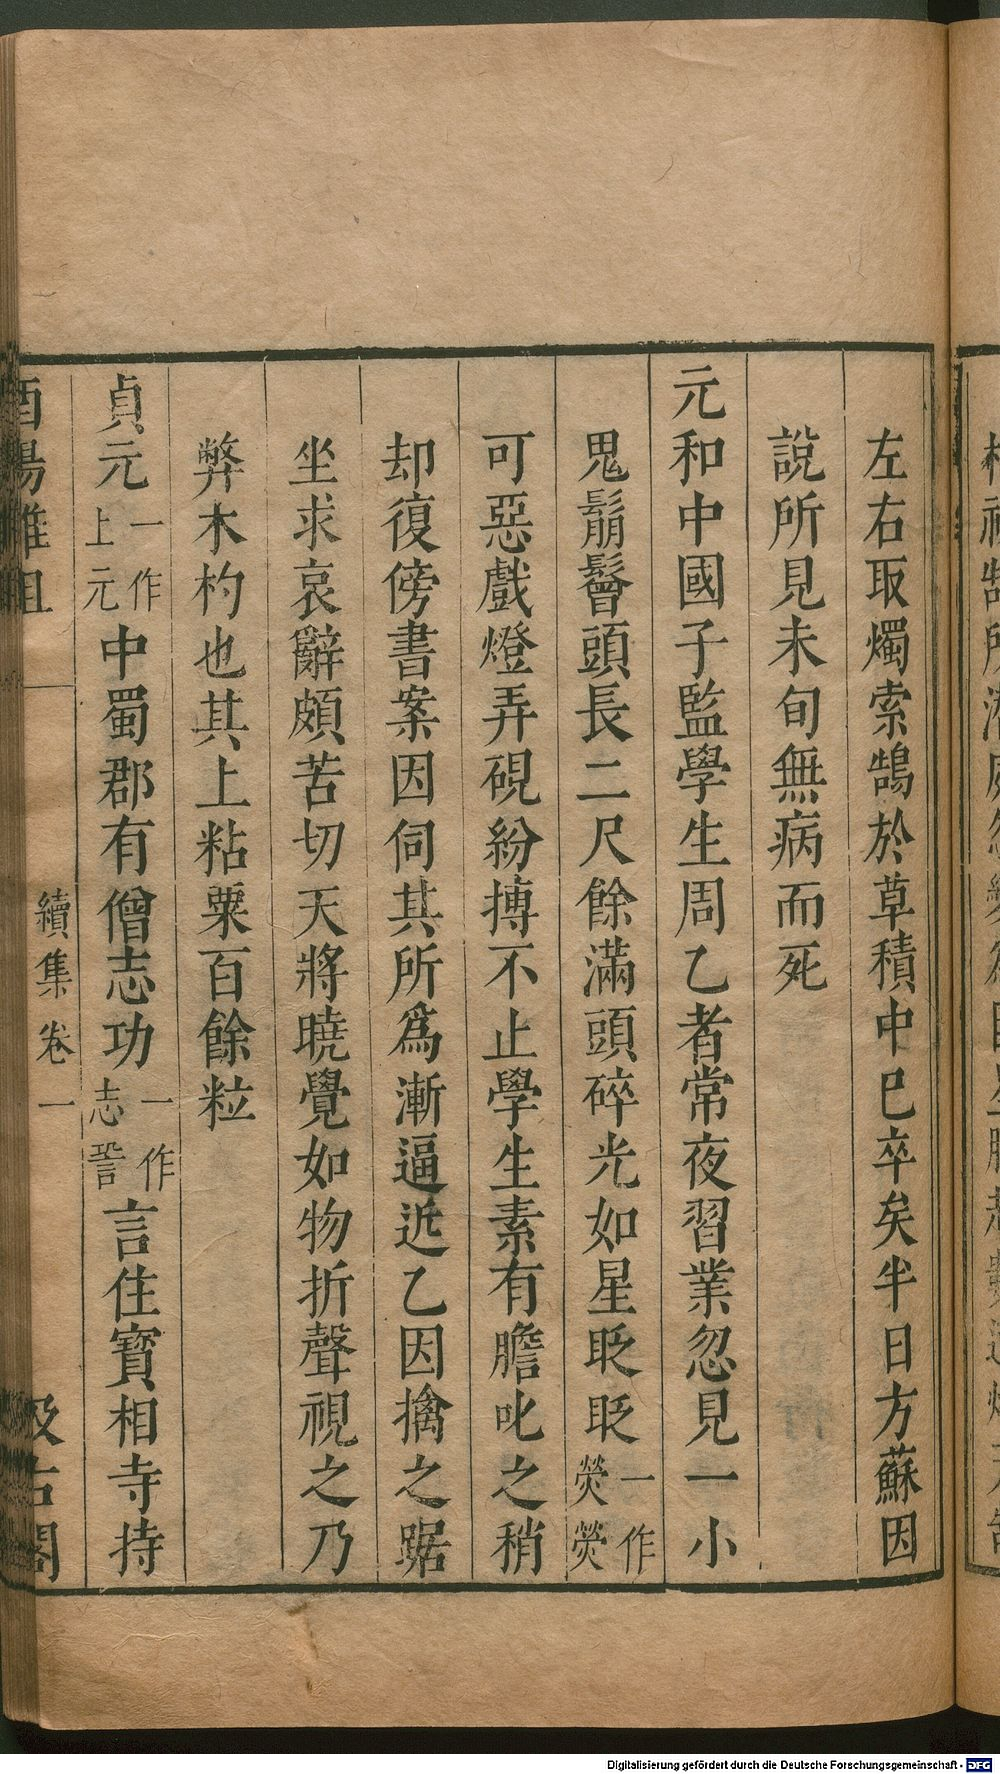 左右取燭索鵠於草積中已卒矣半日方蘇因
說所見未旬無病而死
元和中國子監學生周乙者常夜習業忽見一小
鬼鬅鬙頭長二尺餘滿頭碎光如星眨眨一作熒熒
可惡戲燈弄硯紛搏不止學生素有膽叱之稍
却復傍書案因伺其所爲漸逼近乙因擒之踞
坐求哀辭頗苦切天將曉覺如物折聲視之乃
弊木杓也其上粘粟百餘粒
貞元一作上元中蜀郡有僧志功一作志䛑言住寶相寺持
酉陽雜俎
續集卷一
汲古閣
Digitalisierung gefördert durch die Deutsche Forschungsgemeinschaft - DFG